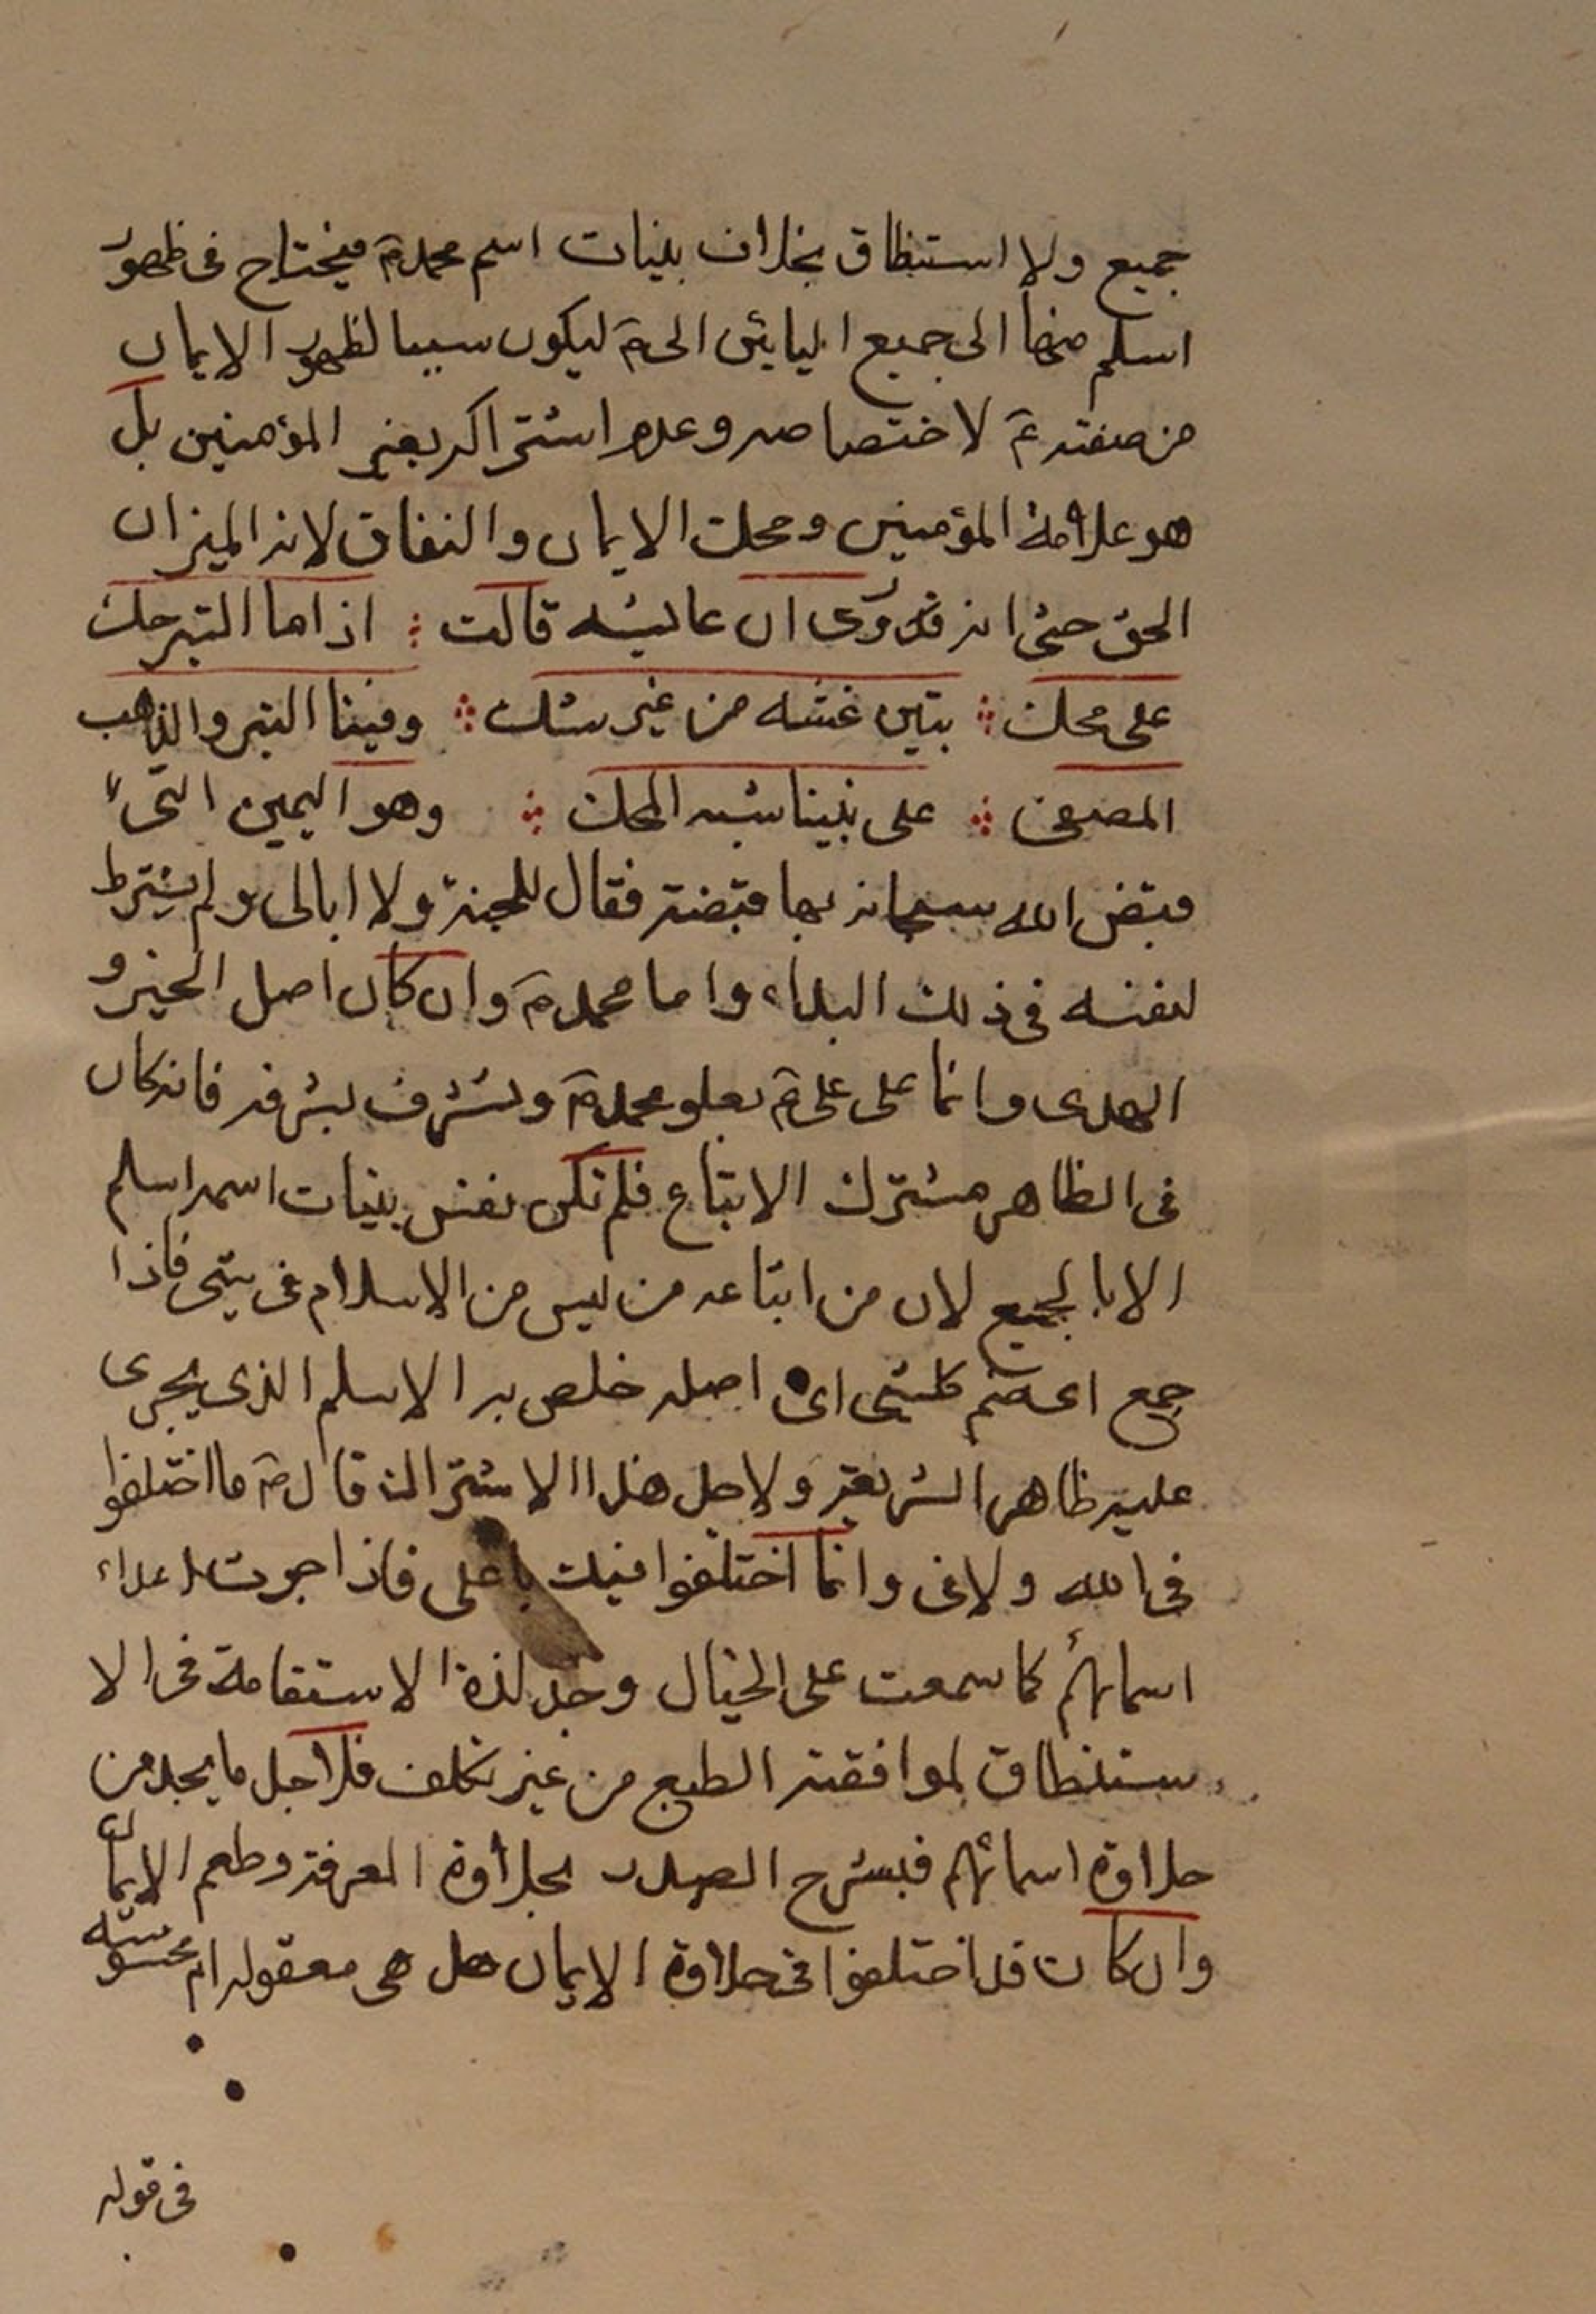 جميع ولا استنطاق بخلاف بينات اسم محمد ص فيحتاج في ظهور
اسلم منها الى جميع اليائين الى م ليكون سببا لظهور الايمان
من صفته ع لاختصاصه وعدم اشتراكه بغير المؤمنين بل
هو علامة المؤمنين ومحك الايمان والنفاق لانه الميزان
الحق حتى انه قد روى ان عايشه قالت : اذا ما التبر حك
على محك ؞ تبين غشه من غير شك ؞ وفينا التبر والذهب
المصفى ؞ على بيننا شبه المحك ؞ وهو اليمين التى
قبض الله سبحانه بها قبضته فقال للجنة ولا ابالى ولم يشترط
لنفسه فى ذلك البداء واما محمد ص وان كان اصل الخير و
الهدى وانما على على ع بعلو محمد ص وتشرف بشرفه فانه كان
فى الظاهر مشترك الاتباع فلم تكن نفس بينات اسمه اسلم
الا بالجميع لان من اتباعه من ليس من الاسلام فى شى فاذا
جمع اى ضم كلشى الى اصله خلص به الاسلم الذى يجرى
عليه ظاهر الشريعة ولاجل هذا الاشتراك قال ص ما اختلفوا
فى الله ولا فى وانما اختلفوا فيك يا على فاذا جرت اعداء
اسمائهم كما سمعت على الخيال وجد لذة الاستقامة فى الا
ستنطاق لموافقته الطبع من غير تكلف فلاجل ما يجد من
حلاوة اسمائهم فيشرح الصدر بحلاوة المعرفة وطعم الايمان
وان كانت قد اختلفوا فى حلاوة الايمان هل هى معقوله ام محسوسه
فى قوله